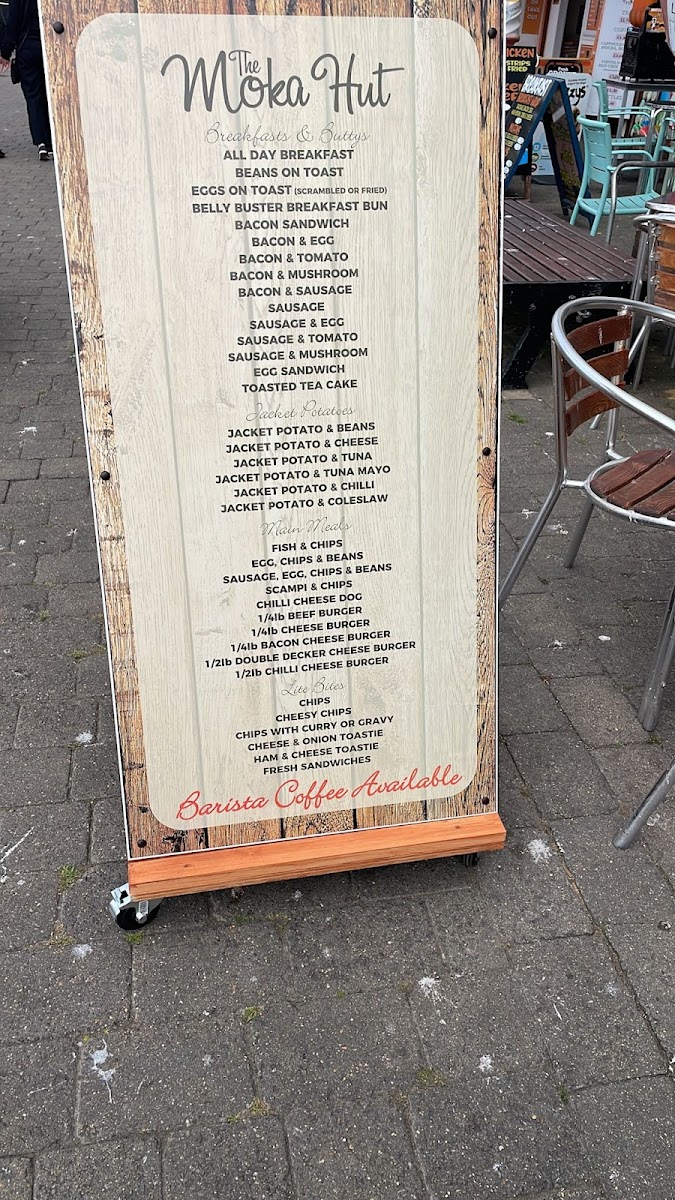 The
Moka Hut
Breakfasts & Buttys
ALL DAY BREAKFAST
BEANS ON TOAST
EGGS ON TOAST (SCRAMBLED OR FRIED)
BELLY BUSTER BREAKFAST BUN
BACON SANDWICH
BACON & EGG
BACON & TOMATO
BACON & MUSHROOM
BACON & SAUSAGE
SAUSAGE
SAUSAGE & EGG
SAUSAGE & TOMATO
SAUSAGE & MUSHROOM
EGG SANDWICH
TOASTED TEA CAKE
Jacket Potatoes
JACKET POTATO & BEANS
JACKET POTATO & CHEESE
JACKET POTATO & TUNA
JACKET POTATO & TUNA MAYO
JACKET POTATO & CHILLI
JACKET POTATO & COLESLAW
Main Meals
FISH & CHIPS
EGG, CHIPS & BEANS
SAUSAGE, EGG, CHIPS & BEANS
SCAMPI & CHIPS
CHILLI CHEESE DOG
1/4lb BEEF BURGER
1/4lb CHEESE BURGER
1/4lb BACON CHEESE BURGER
1/2lb DOUBLE DECKER CHEESE BURGER
1/2lb CHILLI CHEESE BURGER
Lite Bites
CHIPS
CHEESY CHIPS
CHIPS WITH CURRY OR GRAVY
CHEESE & ONION TOASTIE
HAM & CHEESE TOASTIE
FRESH SANDWICHES
Barista Coffee Available
STRIPS
FRIED
BREAKFAST